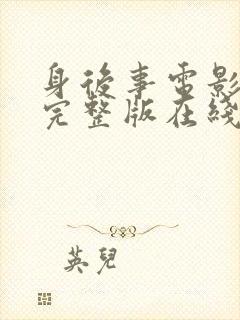 身後事電影
完整版在綫
英兒